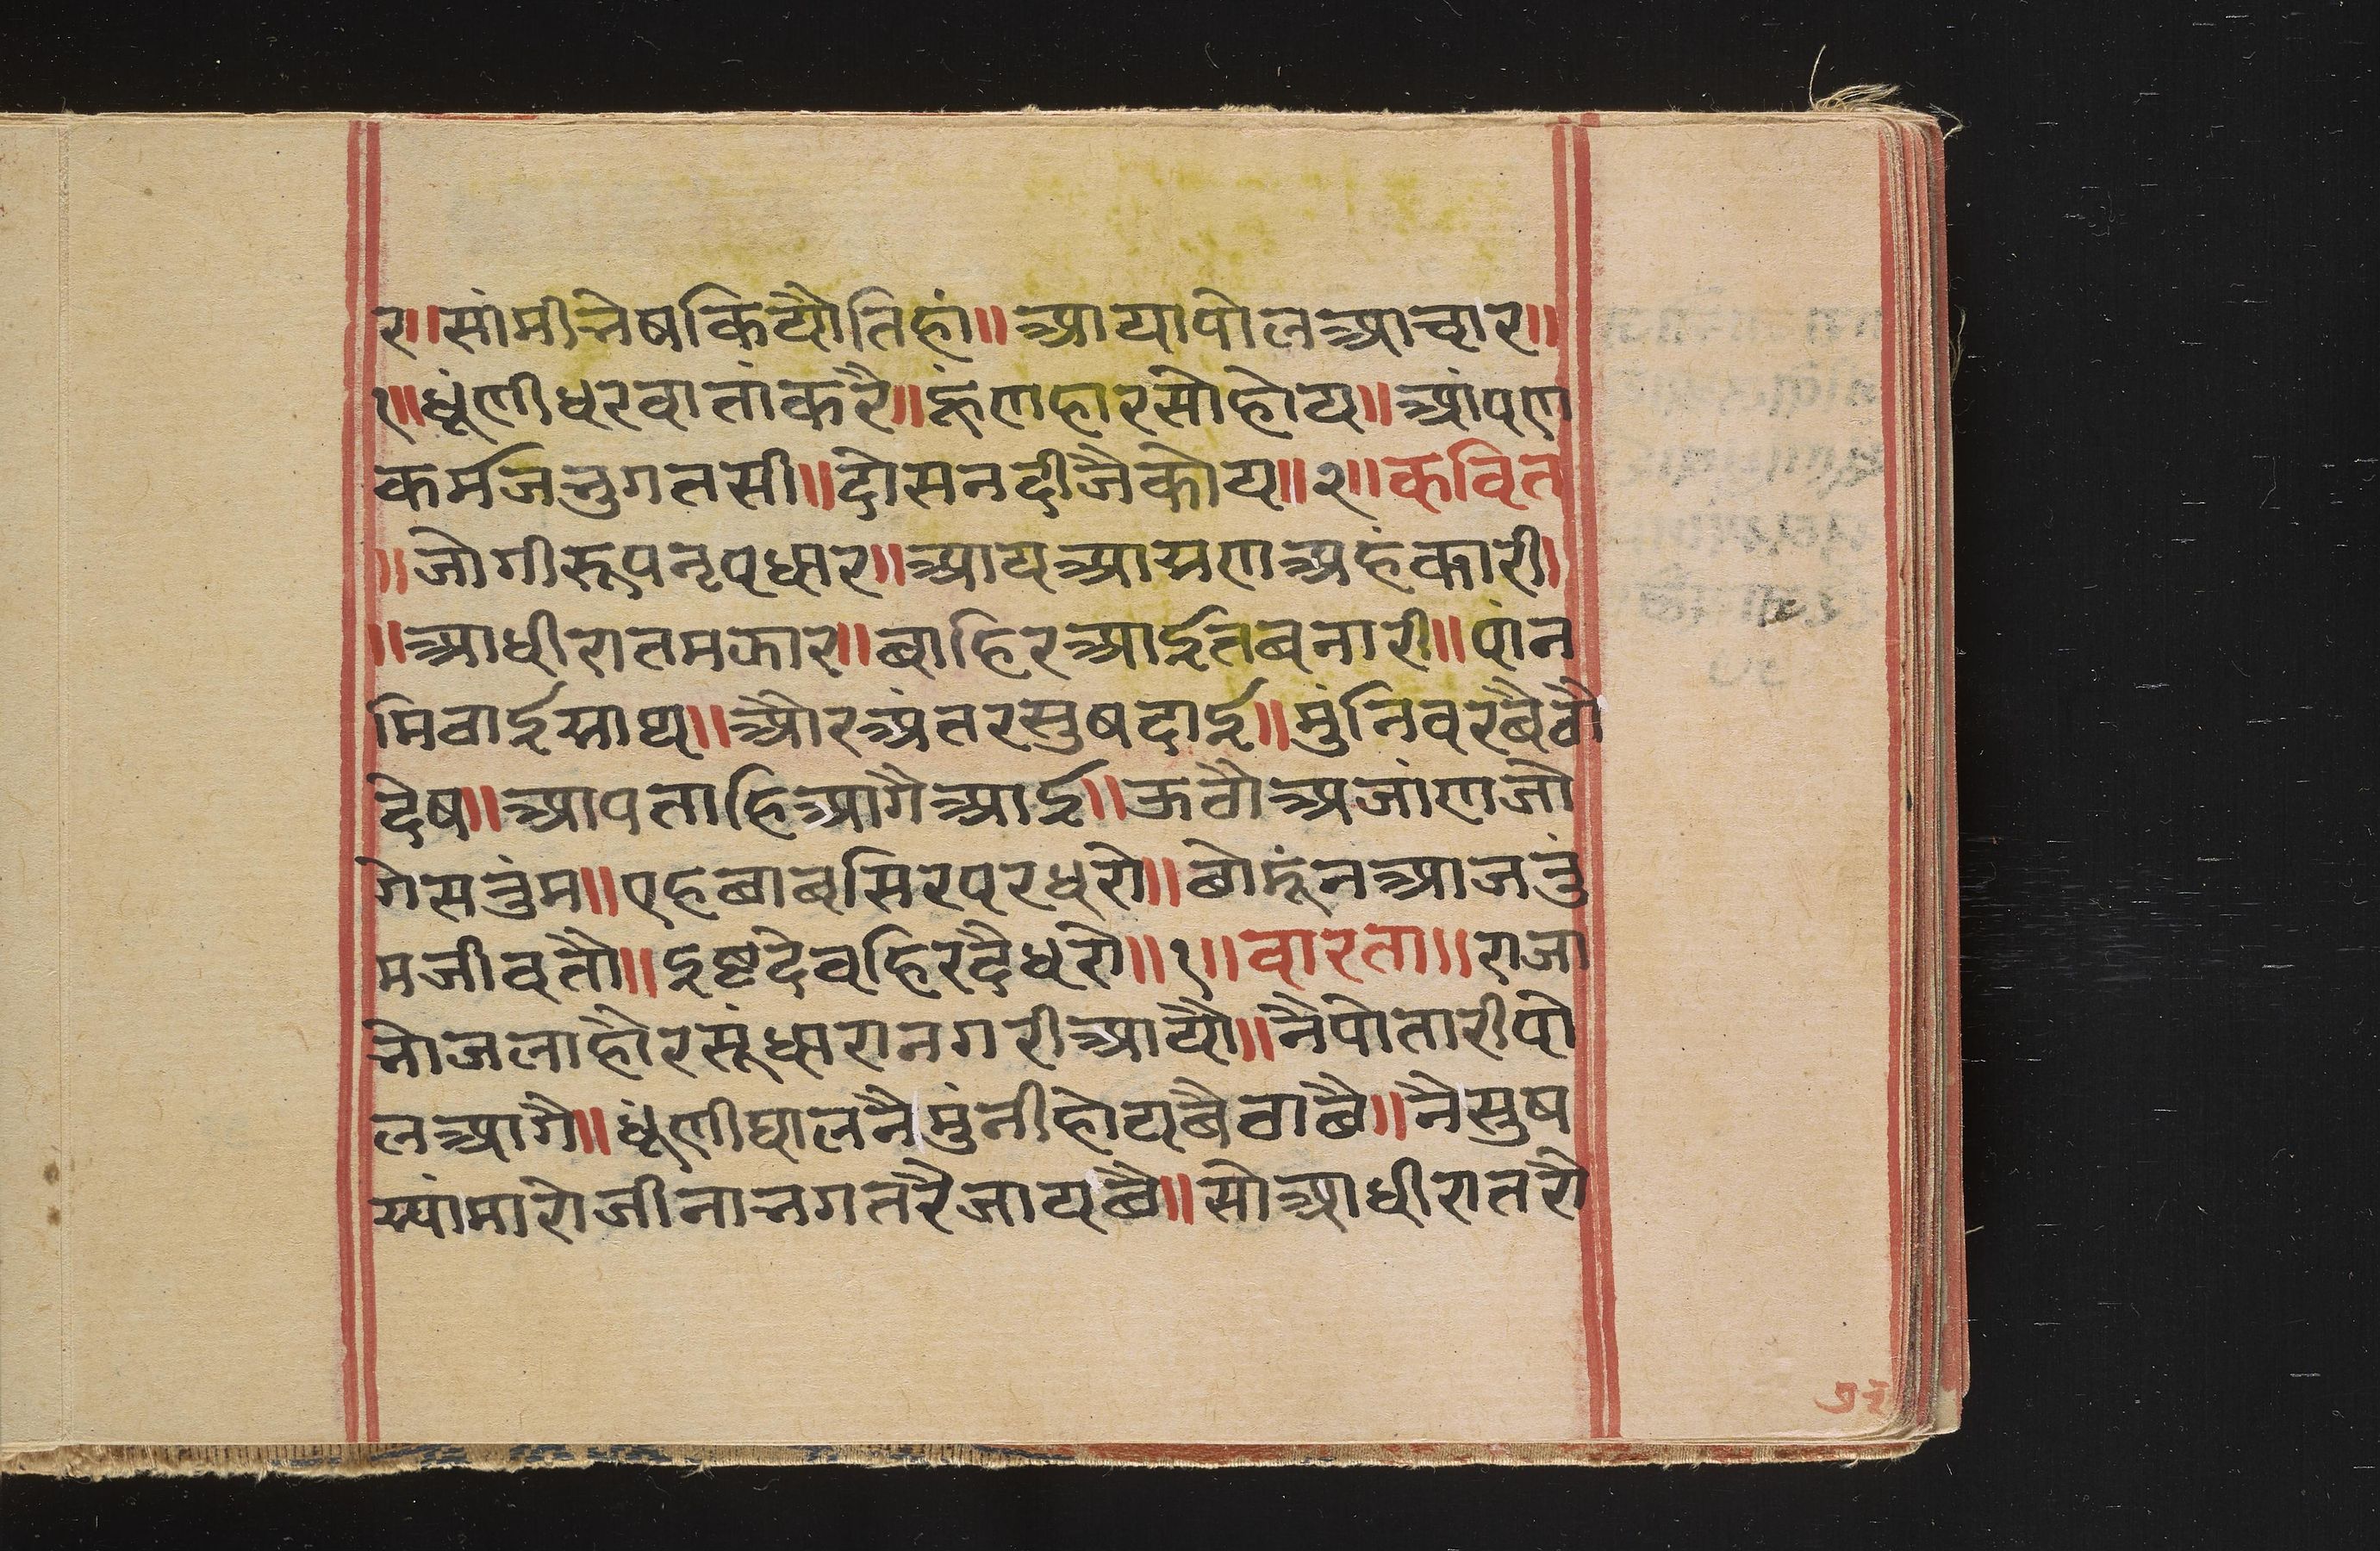 र॥सांमीनेषकियौतिहां॥आयापोलआचार॥
१॥धूंणीधरवातांकरै॥हूंणहारसोहोय॥आंपण
कर्मजनुगतसी॥दोसनदीजैकोय॥२॥कवित
॥जोगीरूपनृपधार॥आयआसणअहंकारी।
॥आधीरातमझार॥बाहिरआईतबनारी॥पांन
मिठाईसाथ॥औरअंतरसुषदाई॥मुंनिवरबैठौ
देष॥आपताहिआगैआई॥ऊठौअजांणजो
गेसनुंम॥एहबाबसिरपरधरो॥बोहूंनआजनुं
मजीवतौ॥इष्टदेवहिरदैधरो॥१॥वारता॥राजा
नोजलाहौरसूंधारानगरीआयौ॥नैपोतारीपो
लआगै॥धूंणीघालनैमुंनीहोयबैठाबै॥नैसुष
स्यांमारोजीनानगतरैजायबै॥सोआधीरातरौ
७२